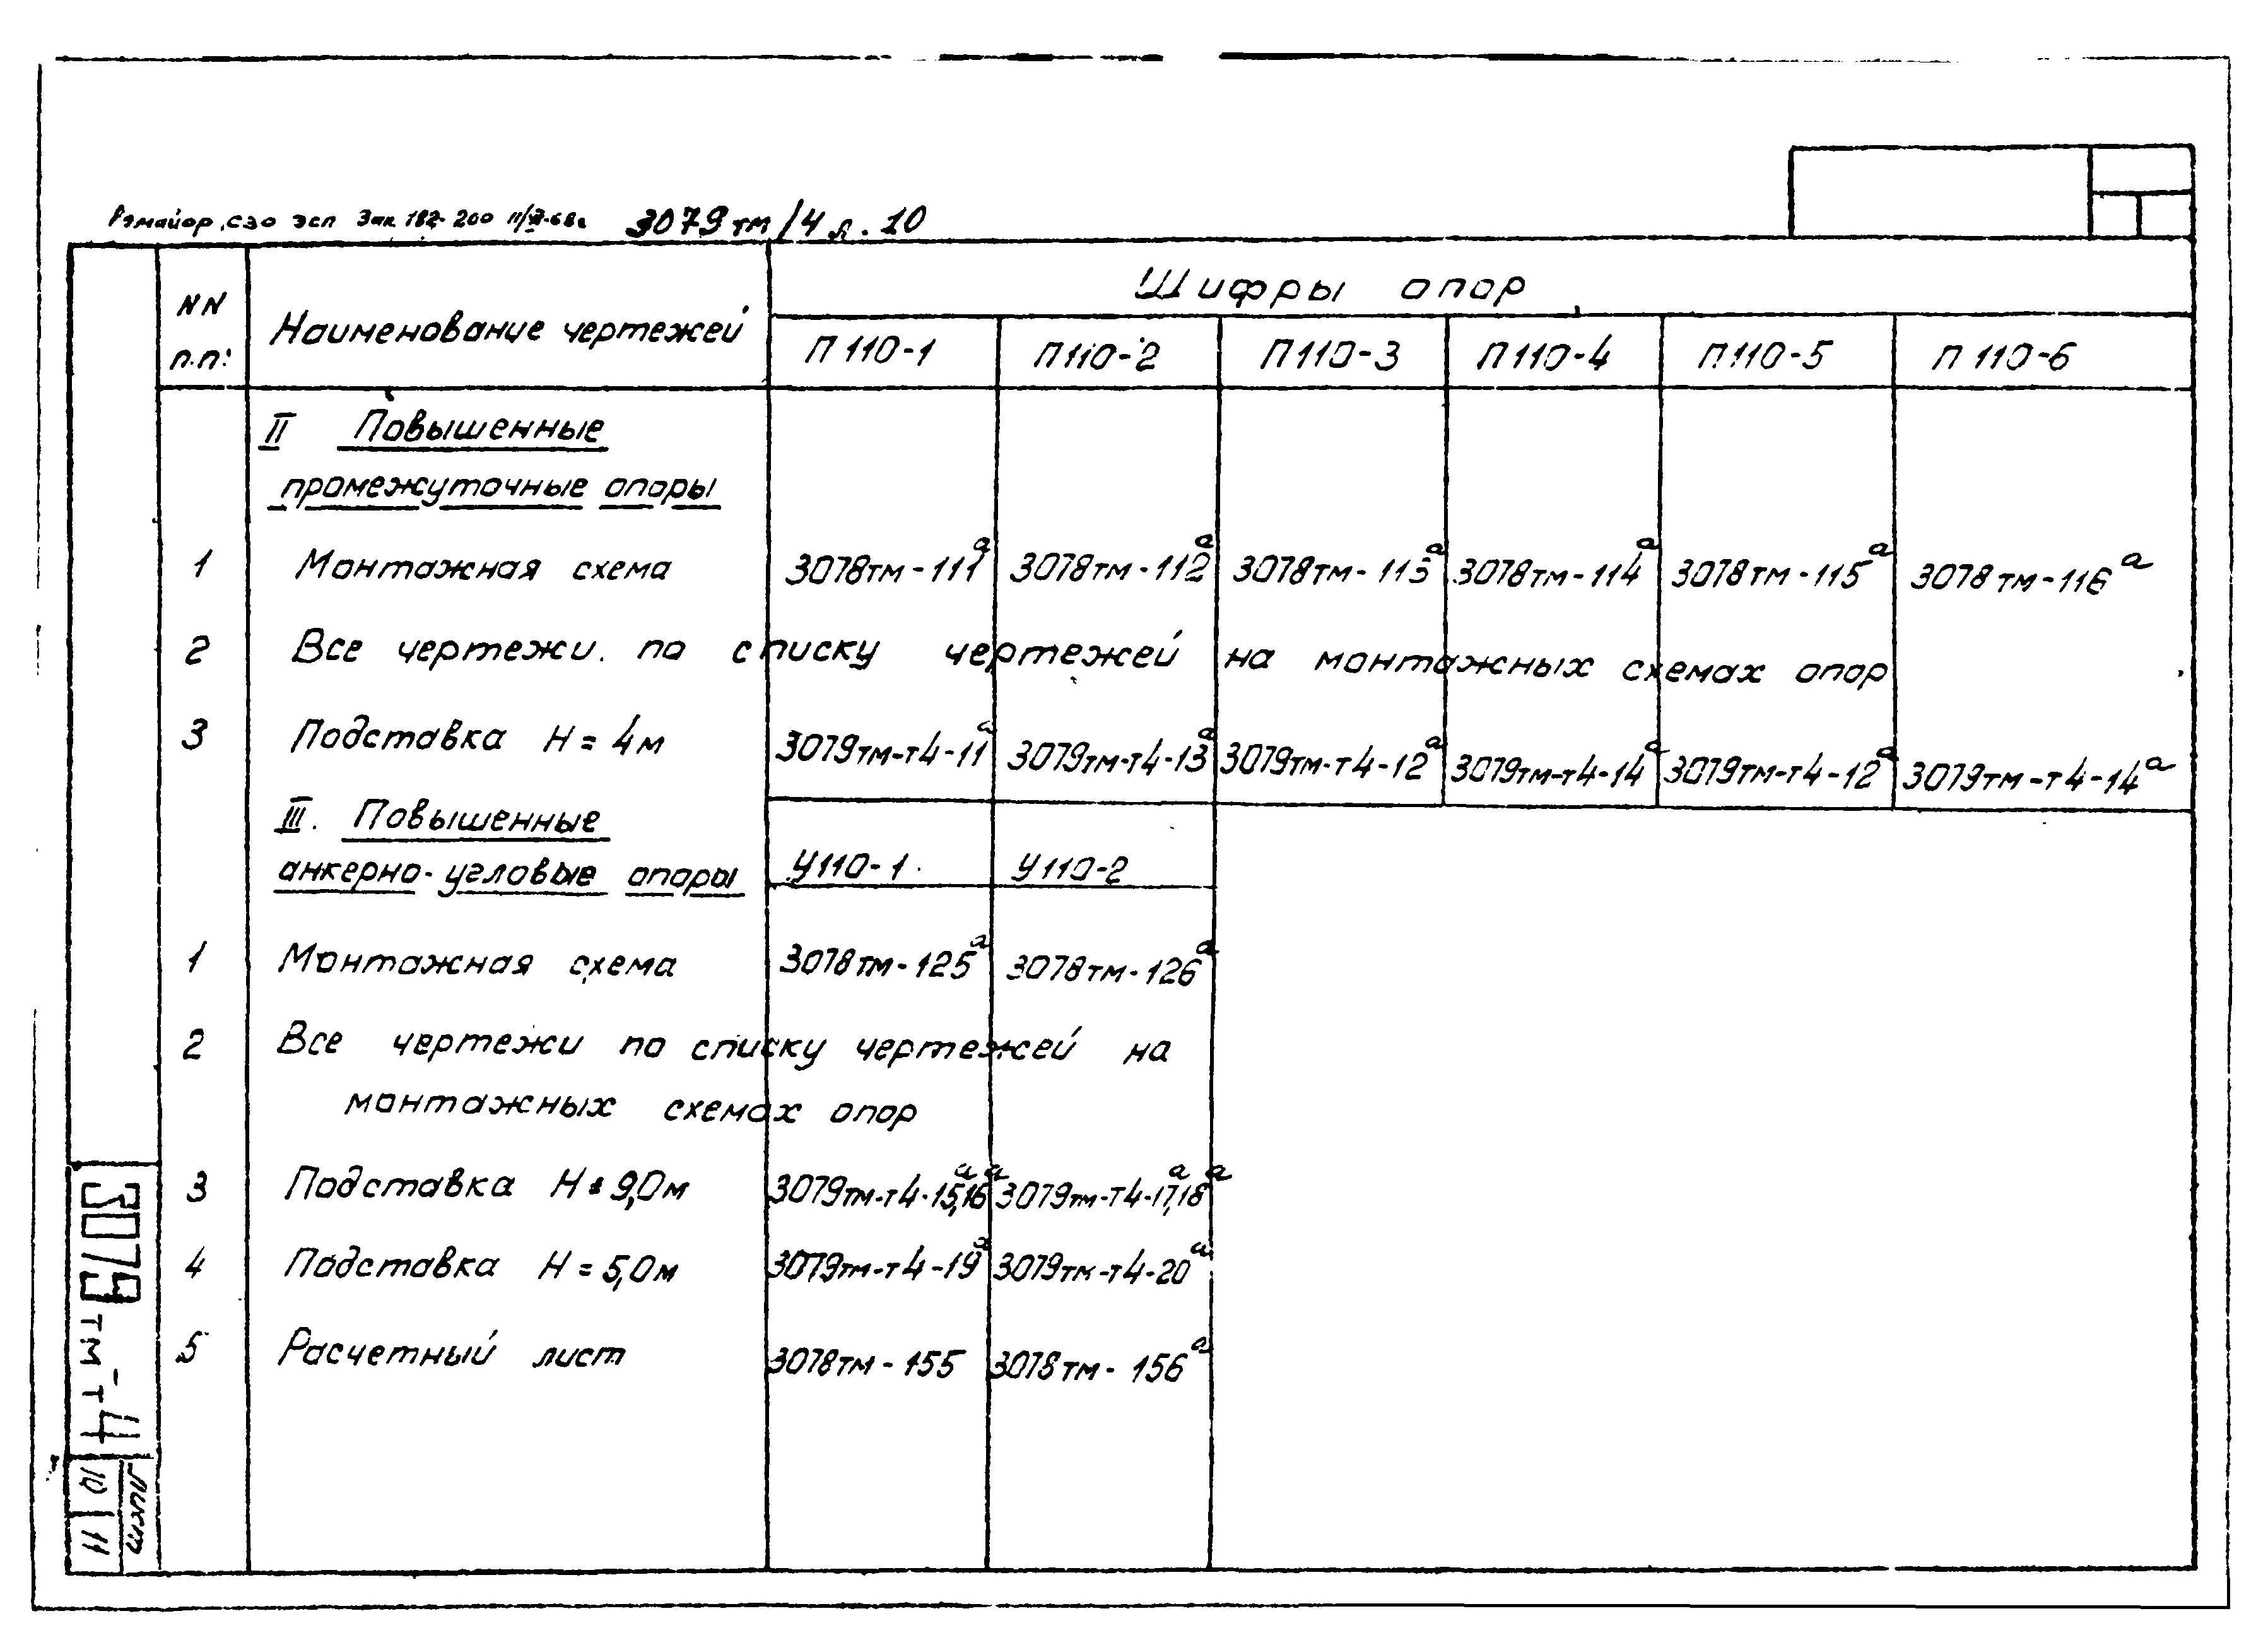 Рэмайор, СЗО ЭСП Зак 187- 200 3079тм/4 л. 10
NN п.п.
Наименование чертежей
Шифры опор
П110-1 П110-2 П110-3 П110-4 П110-5 П110-6
II Повышенные
промежуточные опоры
1 Монтажная схема 3078тм-111а 3078тм-112а 3078тм-113а 3078тм-114а 3078тм-115а 3078тм-116а
2 Все чертежи по списку чертежей на монтажных схемах опор
3 Подставка Н = 4м 3079тм-т4-11а 3079тм-т4-13а 3079тм-т4-12а 3079тм-т4-14а 3079тм-т4-12а 3079тм-т4-14а
III. Повышенные
анкерно-угловые опоры У110-1 У110-2
1 Монтажная схема 3078тм-125а 3078тм-126а
2 Все чертежи по списку чертежей на
монтажных схемах опор
3 Подставка Н = 9,0м 3079тм-т4-15а,16а 3079тм-т4-17а,18а
4 Подставка Н = 5,0м 3079тм-т4-19а 3079тм-т4-20а
5 Расчетный лист 3078тм-155 3078тм-156а
3079тм-т4
10 11